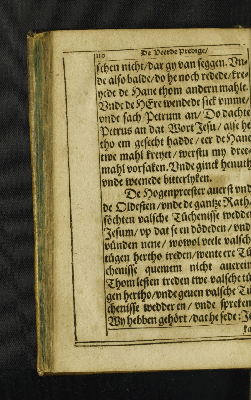 110 De Veerde Predige/
schen nicht/ dar gy van seggen. Vn-
de also balde/ do he noch redede/ kre
yede de Hane thom andern mahle.
Vnde de HEre wendede sick vmme/
vnde sach Petrum an/ Do dachte
Petrus an dat Wort Jesu/ alse he
tho em gesecht hadde/ eer de Hane
twe mahl kreyet/ werstu my dree-
mahl vorsaken. Vnde ginck henuth
vnde weenede bitterlyken.
De Hogenpreester auerst vnd
de Oldesten/ vnde de gantze Rath/
söchten valsche Tüchenisse wedder
Jesum/ vp dat se en dödeden/ vnde
vünden nene/ wowol veele valsche
tügen hertho treden/ wente ere Tü
chenisse quemem nicht auerein
Thom lesten treden twe valsche tü
gen hertho/ vnde geuen valsche Tü
chenisse wedder en/ vnde spreken
Wy hebben gehört/ dat he sede: Je